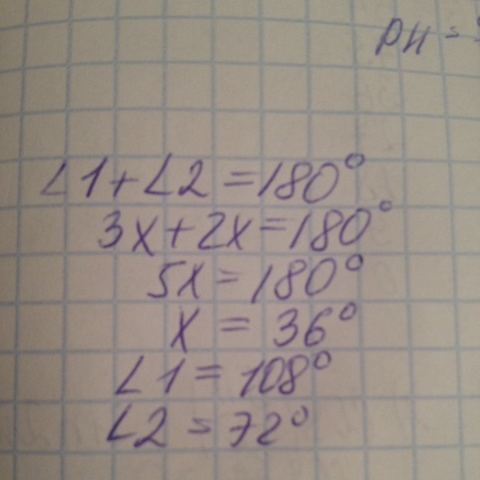 PH =
∠1+∠2=180°
3x+2x=180°
5x=180°
x = 36°
∠1=108°
∠2=72°